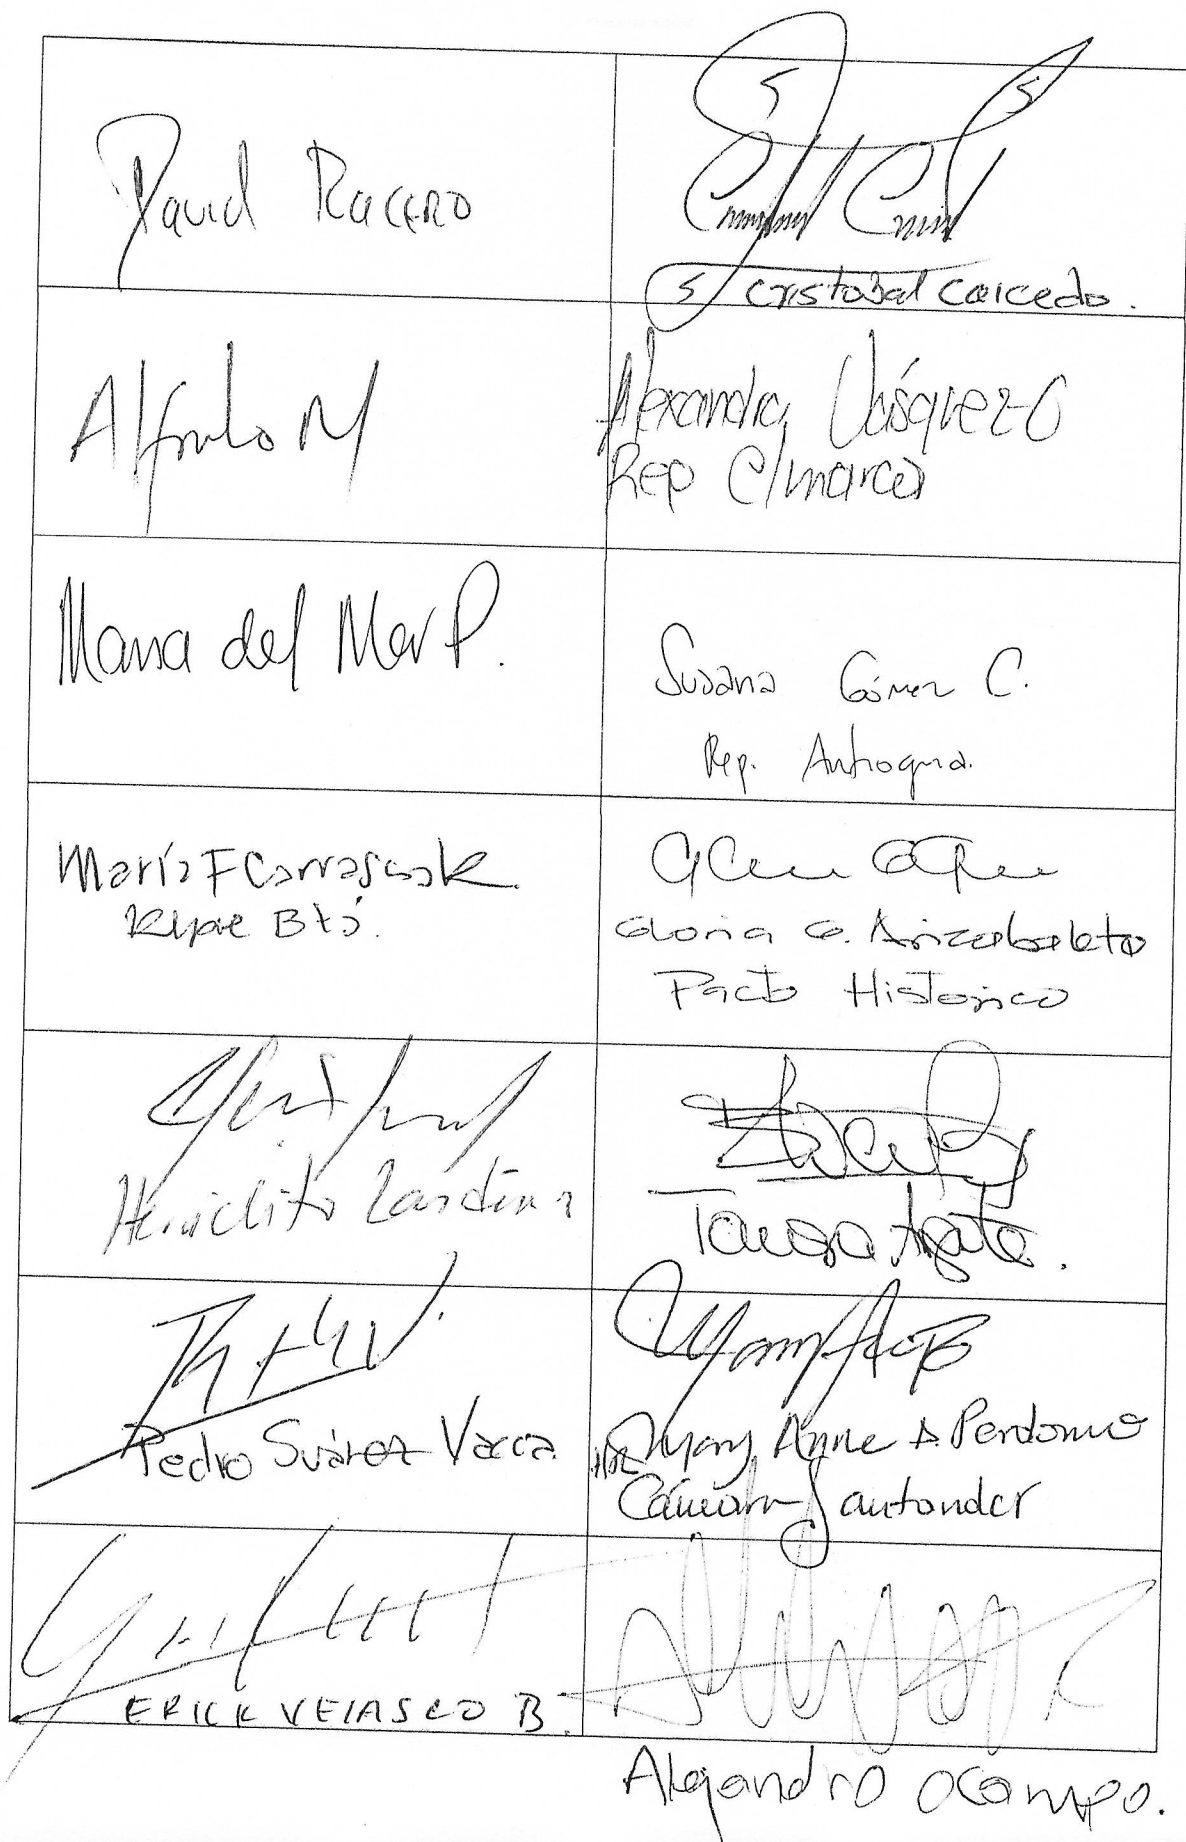 David Racero
Cristobal Caicedo.
Alfredo M
Alexandra Vásquez O
Rep C/marca
Maria del Mar P.
Susana Gómez C.
Rep. Antioquia.
María F Carrascal R.
Rpte Btá.
Gloria E. Arizabaleta
Pacto Historico
Heraclito Landinez
Tamara Argote.
Pedro Suárez Vacca
Mary Anne A. Perdomo
Cámara Santander
ERICK VELASCO B.
Alejandro Ocampo.